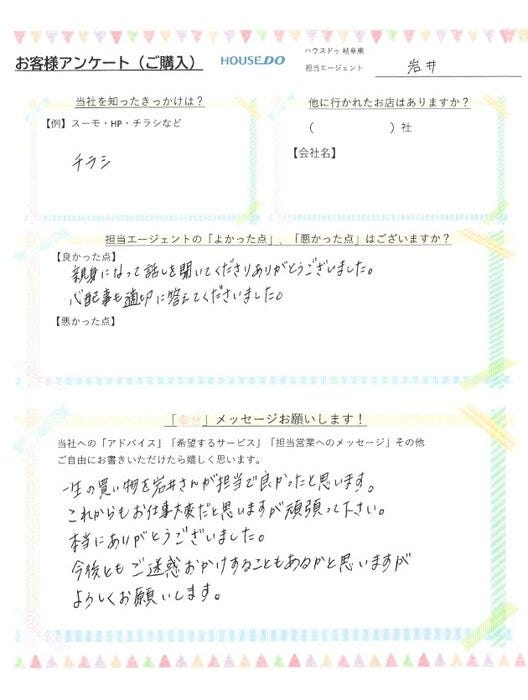 お客様アンケート（ご購入）
HOUSEDO
ハウスドゥ 岐阜東
担当エージェント 岩井
当社を知ったきっかけは？
【例】スーモ・HP・チラシなど
チラシ
他に行かれたお店はありますか？
（　　　　　　）社
【会社名】
担当エージェントの「よかった点」、「悪かった点」はございますか？
【良かった点】
親身になって話しを聞いてくださりありがとうございました。
心配事も適切に答えてくださいました。
【悪かった点】
「幸せ」メッセージお願いします！
当社への「アドバイス」「希望するサービス」「担当営業へのメッセージ」その他
ご自由にお書きいただけたら嬉しく思います。
一生の買い物を岩井さんが担当で良かったと思います。
これからもお仕事大変だと思いますが頑張って下さい。
本当にありがとうございました。
今後とも ご迷惑おかけすることもあるかと思いますが
よろしくお願いします。